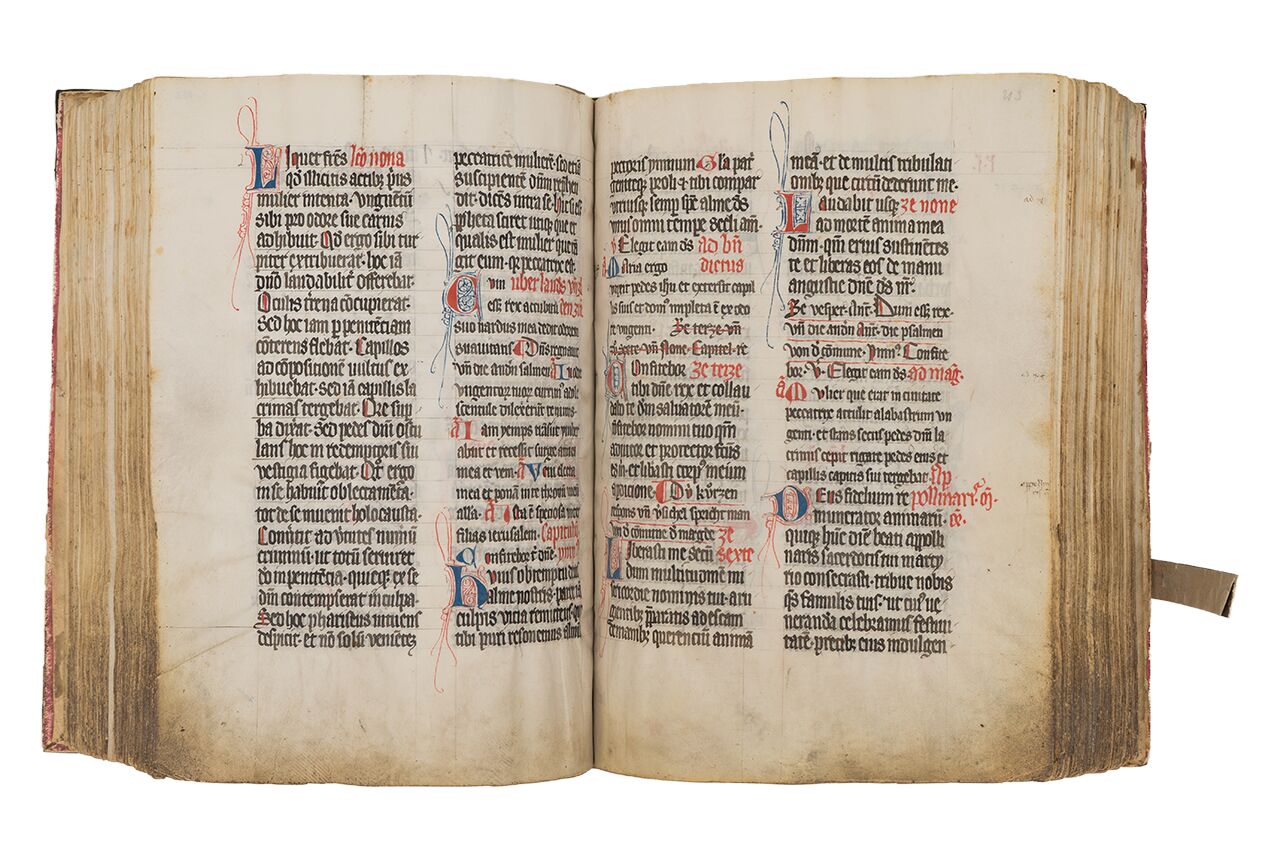 Liquet fr̄es lc̄o nona
q̄d illicitis actibꝫ prius
mulier intenta · unguentū
sibi pro odore sue carnis
adhibuit · Qd̄ ergo sibi tur
piter exhibuerat · hoc iā
deo laudabiliter offerebat ·
Oculis terrena cōcupierat ·
Sed hoc iam ꝑ penitēciam
cōterens flebat · Capillos
ad cōpositionē vultus ex
hibuebat · Sed iā capillis la
crimas tergebat · Ore sup
ba dixerat · Sed pedes dn̄i oscu
lans hoc in redemptoris sui
vestigia figebat · Qt̄ ergo
in se habuit oblectamēta ·
tot de se inuenit holocausta ·
Conuertit ad v̄tutes numerū
criminū · ut totū seruiret
deo in penitēcia · quicqꝫ ex se
dm̄ contempserat in culpa ·
Sed hoc phariseus intuens
despicit · et nō solū venientē
peccatricē mulierē · sed etiā
suscipientē dn̄m reprehen
dit · dicēs intra se · hic si eēt
ꝓpheta sciret utiqꝫ que et
qualis est mulier que tā
git eum · qꝛ peccatrix est ·
Cum uber lauds vn̄ zů
esꝫ rex accubitu den zit
suo nardus mea dedit odorem
suauitatis Dn̄s regnauit
vn̄ die andn̄ salmen A In ode
vngentorū tuorū currimꝰ adole
scentule dilexerūt te nimis ·
A Iam yemps trāsiit ymber
abiit et recessit surge amica
mea et ven · A Veni electa
mea et ponā in te thronū meū
alla · A Ista ē speciosa inter
filias ierusalem · Capitulū
Confitebor t̄ dn̄e · ymn̄
Huius obtemptu deus
alme nostris · parce iā
culpis vicia remittens · quo
tibi puri resonemus almū
pectoris ymnum Gl̄a patͥ
genitoqꝫ proli · & tibi compar
utriusqꝫ semp sp̄c alme dꝰs
unus omni tempre secli am̄ ·
v Elegit eam dꝰs ad bn̄
A Maria ergo dictus
vnxit pedes ih̄u et extersit capil
lis suis et domꝰ impleta ē ex odo
re vngenti · Ze terze vn̄
ze sexte vn̄ None · Capitel · re
Confitebor ze terze
tibi dn̄e rex et collau
dabo te dm̄ saluatorē meū ·
cōfitebor nomini tuo qm̄
adiutor et protector factꝰ es
m̄ et libasti corpꝰ meum
a ꝑdicione · Dy kurzen
respons vn̄ v̄sichel spricht man
von dͤ comune dͤ megde ze
Liberasti me secūd sexte
dum multitudinē mi
sericordie nominis tui · a ru
gientibꝫ p̄paratis ad escam
de manibꝫ querenciū animā
meā · et de multis tribulati
onibꝫ que circūdederunt me ·
Laudabit usqꝫ ze none
ad mortē anima mea
dn̄m · qm̄ eruis sustinētes
te et liberas eos de manu
angustie dn̄e dꝰs nr̄ ·
Ze vesper · Ant̄ · Dum esꝫ rex ·
vn̄ die andn̄ Ant̄ · die psalmen
von dͤ comune · Ymn̄ꝰ Confite
bor · v̄ · Elegit eam dꝰs ad maḡ ·
A Mulier que erat in ciuitate
peccatrix attulit alabastrum vn
genti · et stans secus pedes dn̄i la
crimis cepit rigare pedes eius et
capillis capitis sui tergebat · Ap
Deus fidelium re pollinaris · m̄ ·
munerator animarū · oͤ ·
qui qꝫ hūc diē beati appolli
naris sacerdotis tui marty
rio consecrasti · tribue nobis
qs̄ famulis tuis · ut cuiꝰ ue
neranda celebramus festiui
tatē · precibꝫ eius indulgen